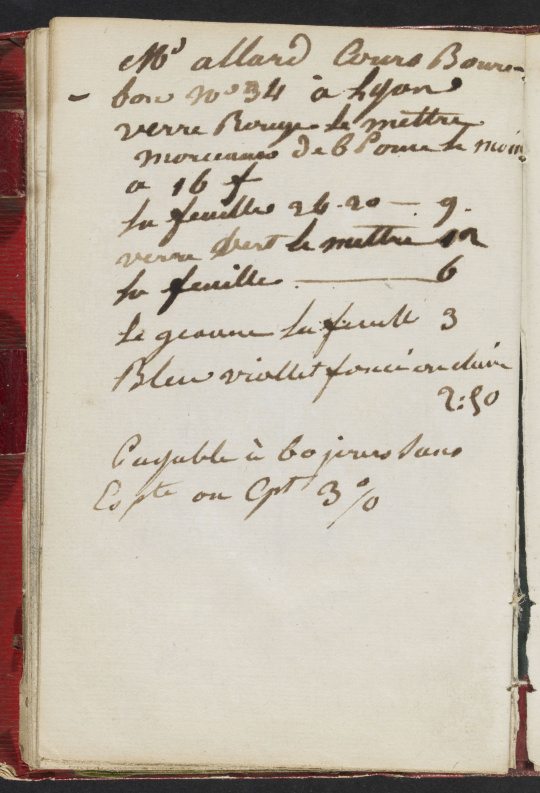 Mr allard Cours Bour-
- bon No 34 à Lyon
verre Rouge le mettre
morceaux de 6 Pouce le moin
a 16 f
la feuille 26-20 — 9.
verre vert le mettre 12
la feuille ——— 6
le geaune la feuille 3
Bleu viollet foncé ou claire
2:50
Payable à 60 jours sans
Escpte ou Cpt 3 %